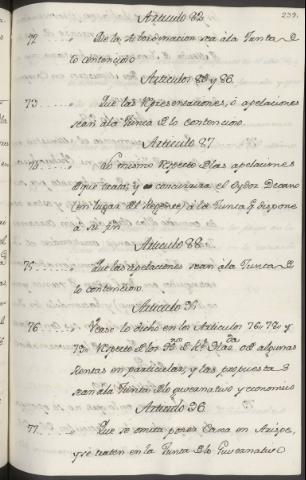 232.
Articulo 82.
72 Que la subordinacion sea á la Junta de
lo contencioso
Articulos 85 y 86.
73 Que las representaciones, ó apelaciones
sean á la Junta de lo contencioso.
Articulo 87
Lo mismo respecto de las apelaciones
de que trata; y concurrirá el Oydor Decano
(en lugar del Regente) á la Junta q.e dispone
á su fin
Articulo 88.
75 Que las apelaciones sean á la Junta de
lo contencioso.
Articulo 91
76 Vease lo dicho en los Articulos 76, 72, y
73. respecto de los de algunas
Rentas en particular; y las propuestas
sean á la Junta de lo guvernativo y economico
Articulo 96.
77 Que se omita poner Caxa en Arizpe,
y se traten en la Junta de lo Guvernativo